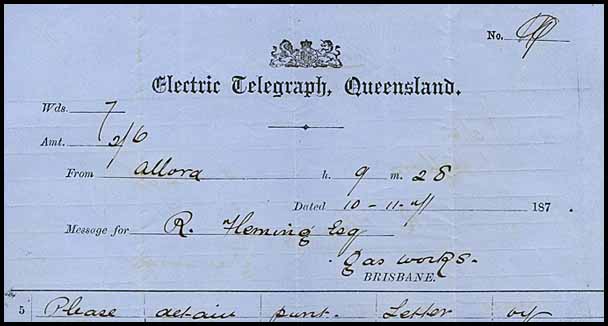 No.
Electric Telegraph, Queensland.
Wds. 7
Amt. 2/6
From Allora h. 9 m. 28
Dated 10-11-71 187
Message for R. Fleming Esq
gas works.
BRISBANE.
5 Please detain punt. Letter by